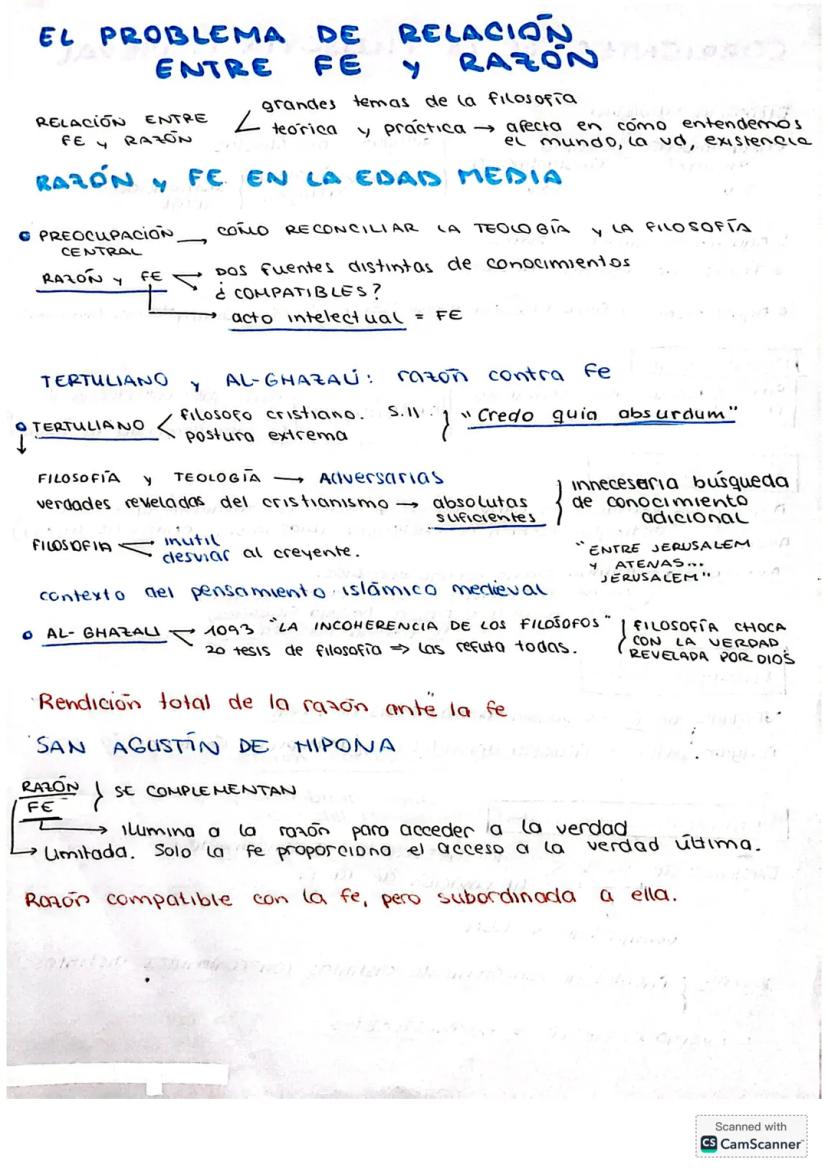 EL PROBLEMA DE RELACIÓN
ENTRE FE y RAZÓN
RELACIÓN ENTRE
FE y RAZÓN
grandes temas de la filosofía
teórica y práctica → afecta en cómo entendemos
el mundo, la vd, existencia
RAZÓN y FE EN LA EDAD MEDIA
PREOCUPACIÓN CENTRAL → CÓMO RECONCILIAR LA TEOLOGÍA y LA FILOSOFÍA
RAZÓN y FE → DOS fuentes distintas de conocimientos
¿COMPATIBLES?
→ acto intelectual = FE
TERTULIANO y AL-GHAZALI: razón contra fe
TERTULIANO
filosofo cristiano. S.II
postura extrema
"Credo quia absurdum"
FILOSOFÍA y TEOLOGÍA → Adversarias
verdades reveladas del cristianismo → absolutas
suficientes
innecesaria búsqueda
de conocimiento
adicional
FILOSOFIA
inutil
desviar al creyente.
"ENTRE JERUSALEM
y ATENAS...
JERUSALEM"
contexto del pensamiento islámico medieval
AL-GHAZALI → 1093 "LA INCOHERENCIA DE LOS FILÓSOFOS"
20 tesis de filosofía ⇒ las refuta todas.
FILOSOFÍA CHOCA
CON LA VERDAD
REVELADA POR DIOS
Rendición total de la razón ante la fe
SAN AGUSTÍN DE HIPONA
RAZÓN
FE
SE COMPLEMENTAN
→ Ilumina a la razón para acceder a la verdad
→ Limitada. Solo la fe proporciona el acceso a la verdad última.
Razón compatible con la fe, pero subordinada a ella.
Scanned with
CS CamScanner